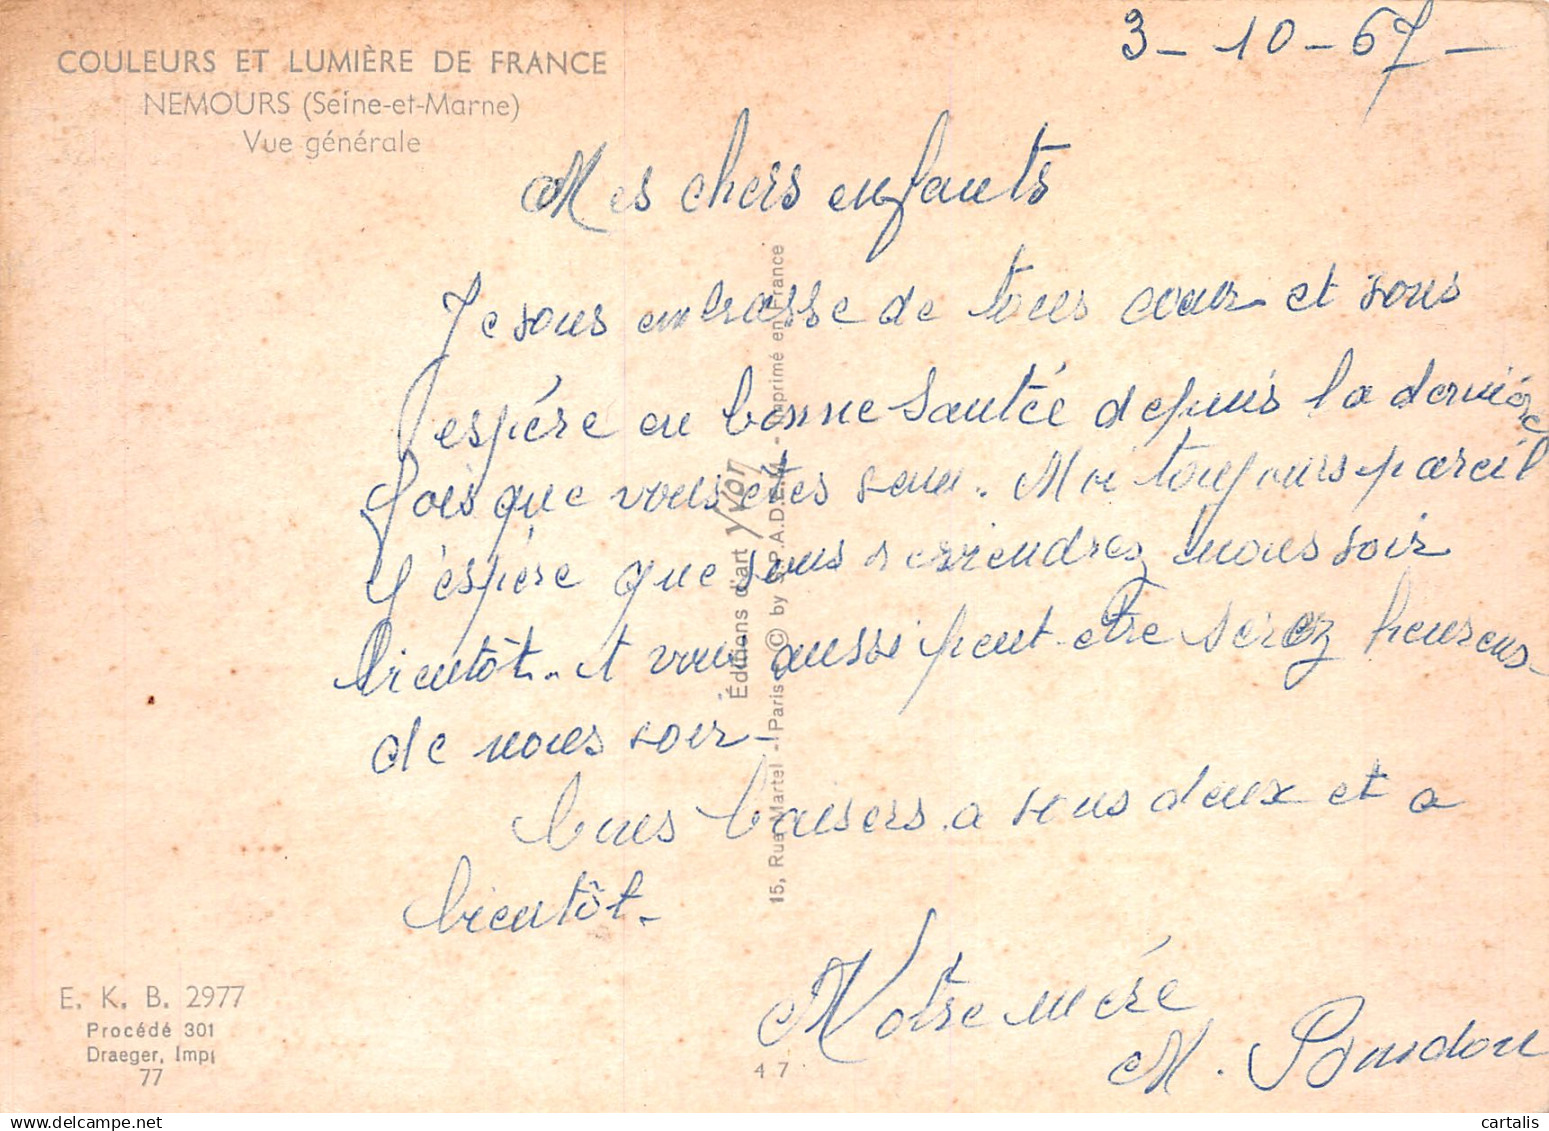 3 - 10 - 67 -
COULEURS ET LUMIÈRE DE FRANCE
NEMOURS (Seine-et-Marne)
Vue générale
Mes chers enfants
Je vous embrasse de tous cœur et vous
espére en bonne santée depuis la derniére
fois que vous etes venu. Moi toujours pareil
J'éspére que vous reviendrez nous voir
bientôt. et vous aussi peut-etre serez heureux
de nous voir -
Bons baisers a vous deux et a
bientôt -
Notre mére
M.
Éditions d'art YVON
15, Rue Martel - Paris - © by S.P.A.D.E.M. - Imprimé en France
E. K. B. 2977
Procédé 301
Draeger, Imp
77
4 7
cartalis